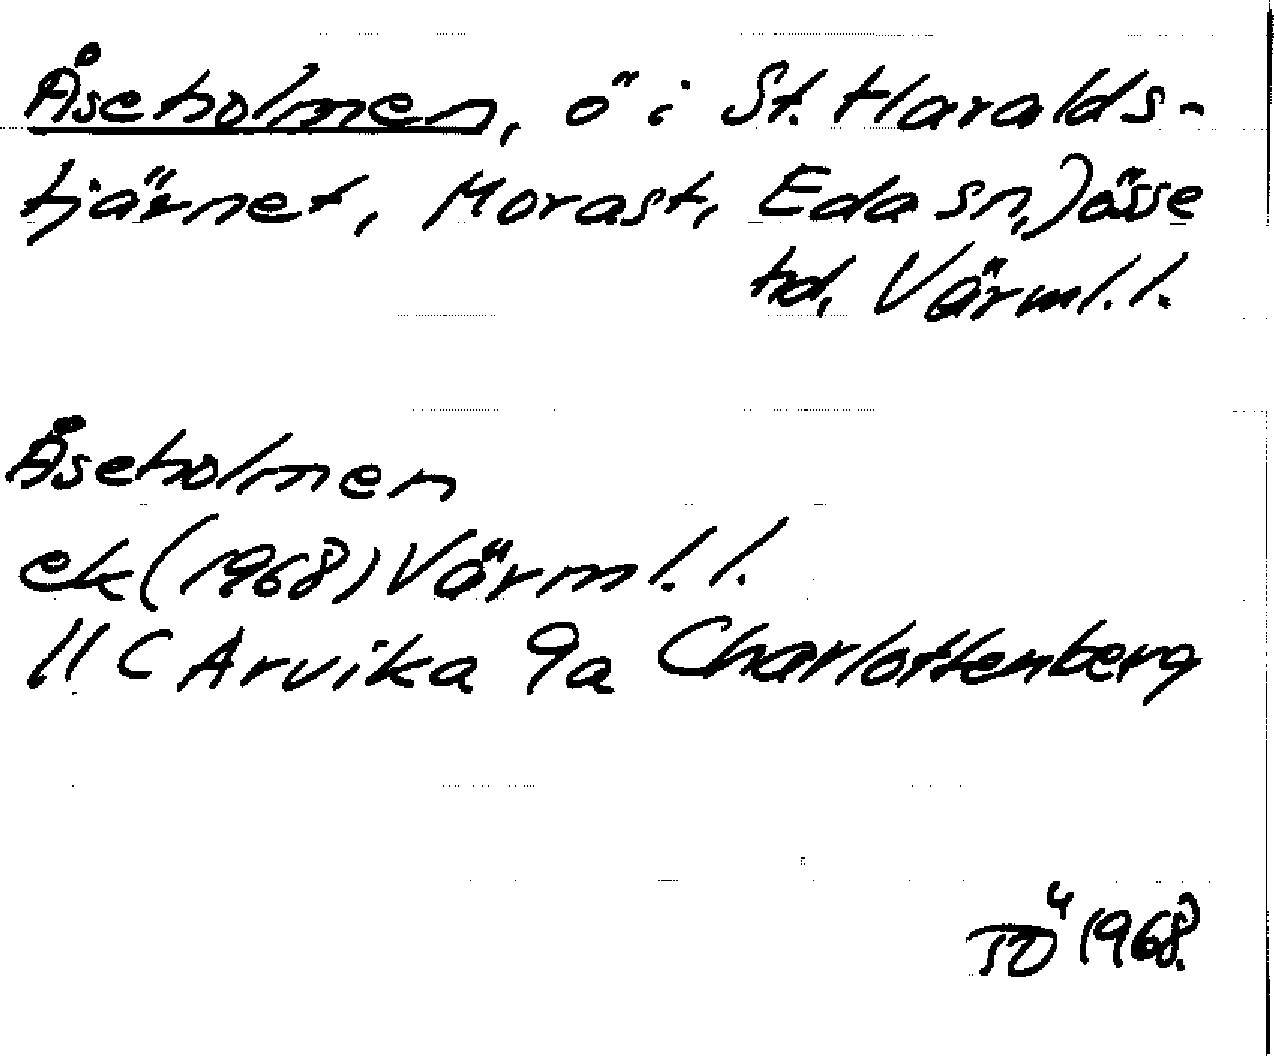 Åseholmen, ö i St. Haralds-
tjärnet, Morast, Eda sn, Jösse
hd, Värml. l.
Åseholmen
ek (1968) Värml. l.
11 C Arvika 9a Charlottenberg
TÖ 1968.